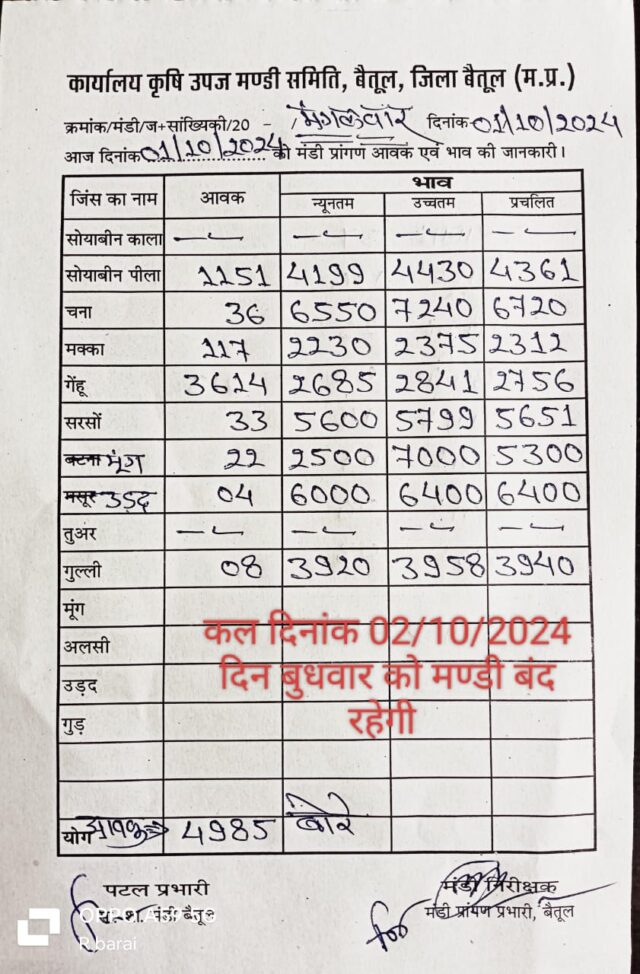 कार्यालय कृषि उपज मण्डी समिति, बैतूल, जिला बैतूल (म.प्र.)
क्रमांक/मंडी/ज+सांख्यिकी/20 - मंगलवार दिनांक 01/10/2024
आज दिनांक 01/10/2024 को मंडी प्रांगण आवक एवं भाव की जानकारी।
जिंस का नाम आवक भाव
न्यूनतम उच्चतम प्रचलित
सोयाबीन काला — — — —
सोयाबीन पीला 1151 4199 4430 4361
चना 36 6550 7240 6720
मक्का 117 2230 2375 2312
गेंहू 3614 2685 2841 2756
सरसों 33 5600 5799 5651
बटना मूंग 22 2500 7000 5300
मसूर उड़द 04 6000 6400 6400
तुअर — — — —
गुल्ली 08 3920 3958 3940
मूंग
अलसी
उड़द
गुड़
कल दिनांक 02/10/2024
दिन बुधवार को मण्डी बंद
रहेगी
योग आवक 4985 बोरे
पटल प्रभारी
मंडी बैतूल
मंडी निरीक्षक
मंडी प्रांगण प्रभारी, बैतूल
OPPO
R.barai